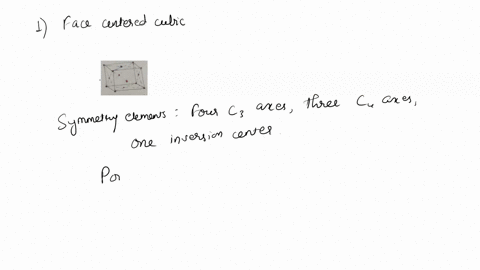 1) Face centered cubic
Symmetry elements : Four C3 axes, three C4 axes,
one inversion center.
Po